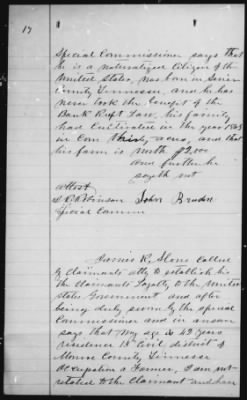 17
Special Commissioner says that
he is a naturalized Citizen of the
United States, was born in Sevier
County Tennessee, and he has
never took the benefit of the
Bank Rupt Law, his family
had Cultivated in the year 1863
in Corn Thirty acres, and that
his farm is worth $2,000
and further he
sayeth not
attest
Robinson John
Special Comm
James K. Stone Called
by Claimants atty to establish his
the Claimants Loyalty to the United
States Government and after
being duly sworn by the special
Commissioner and in answer
says that my age is 42 years
residence 18th Civil district of
Monroe County Tennessee
Occupation a Farmer, I am not
related to the Claimant and have